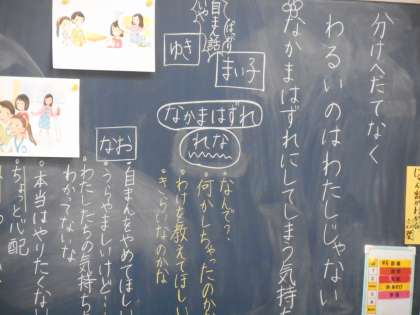 分けへだてなく
わるいのはわたしじゃない
なかまはずれにしてしまう気持ち
まい子
自まん話
ゆき
なかまはずれ
れな
・なんで？
・何かしちゃったのかな
・わけを教えてほしい
・きらいなのかな
なお
・自まんをやめてほしい
・うらやましいけど…
・わたしたちの気持ち
わかってないな
・本当はやりたくない
・ちょっと心配